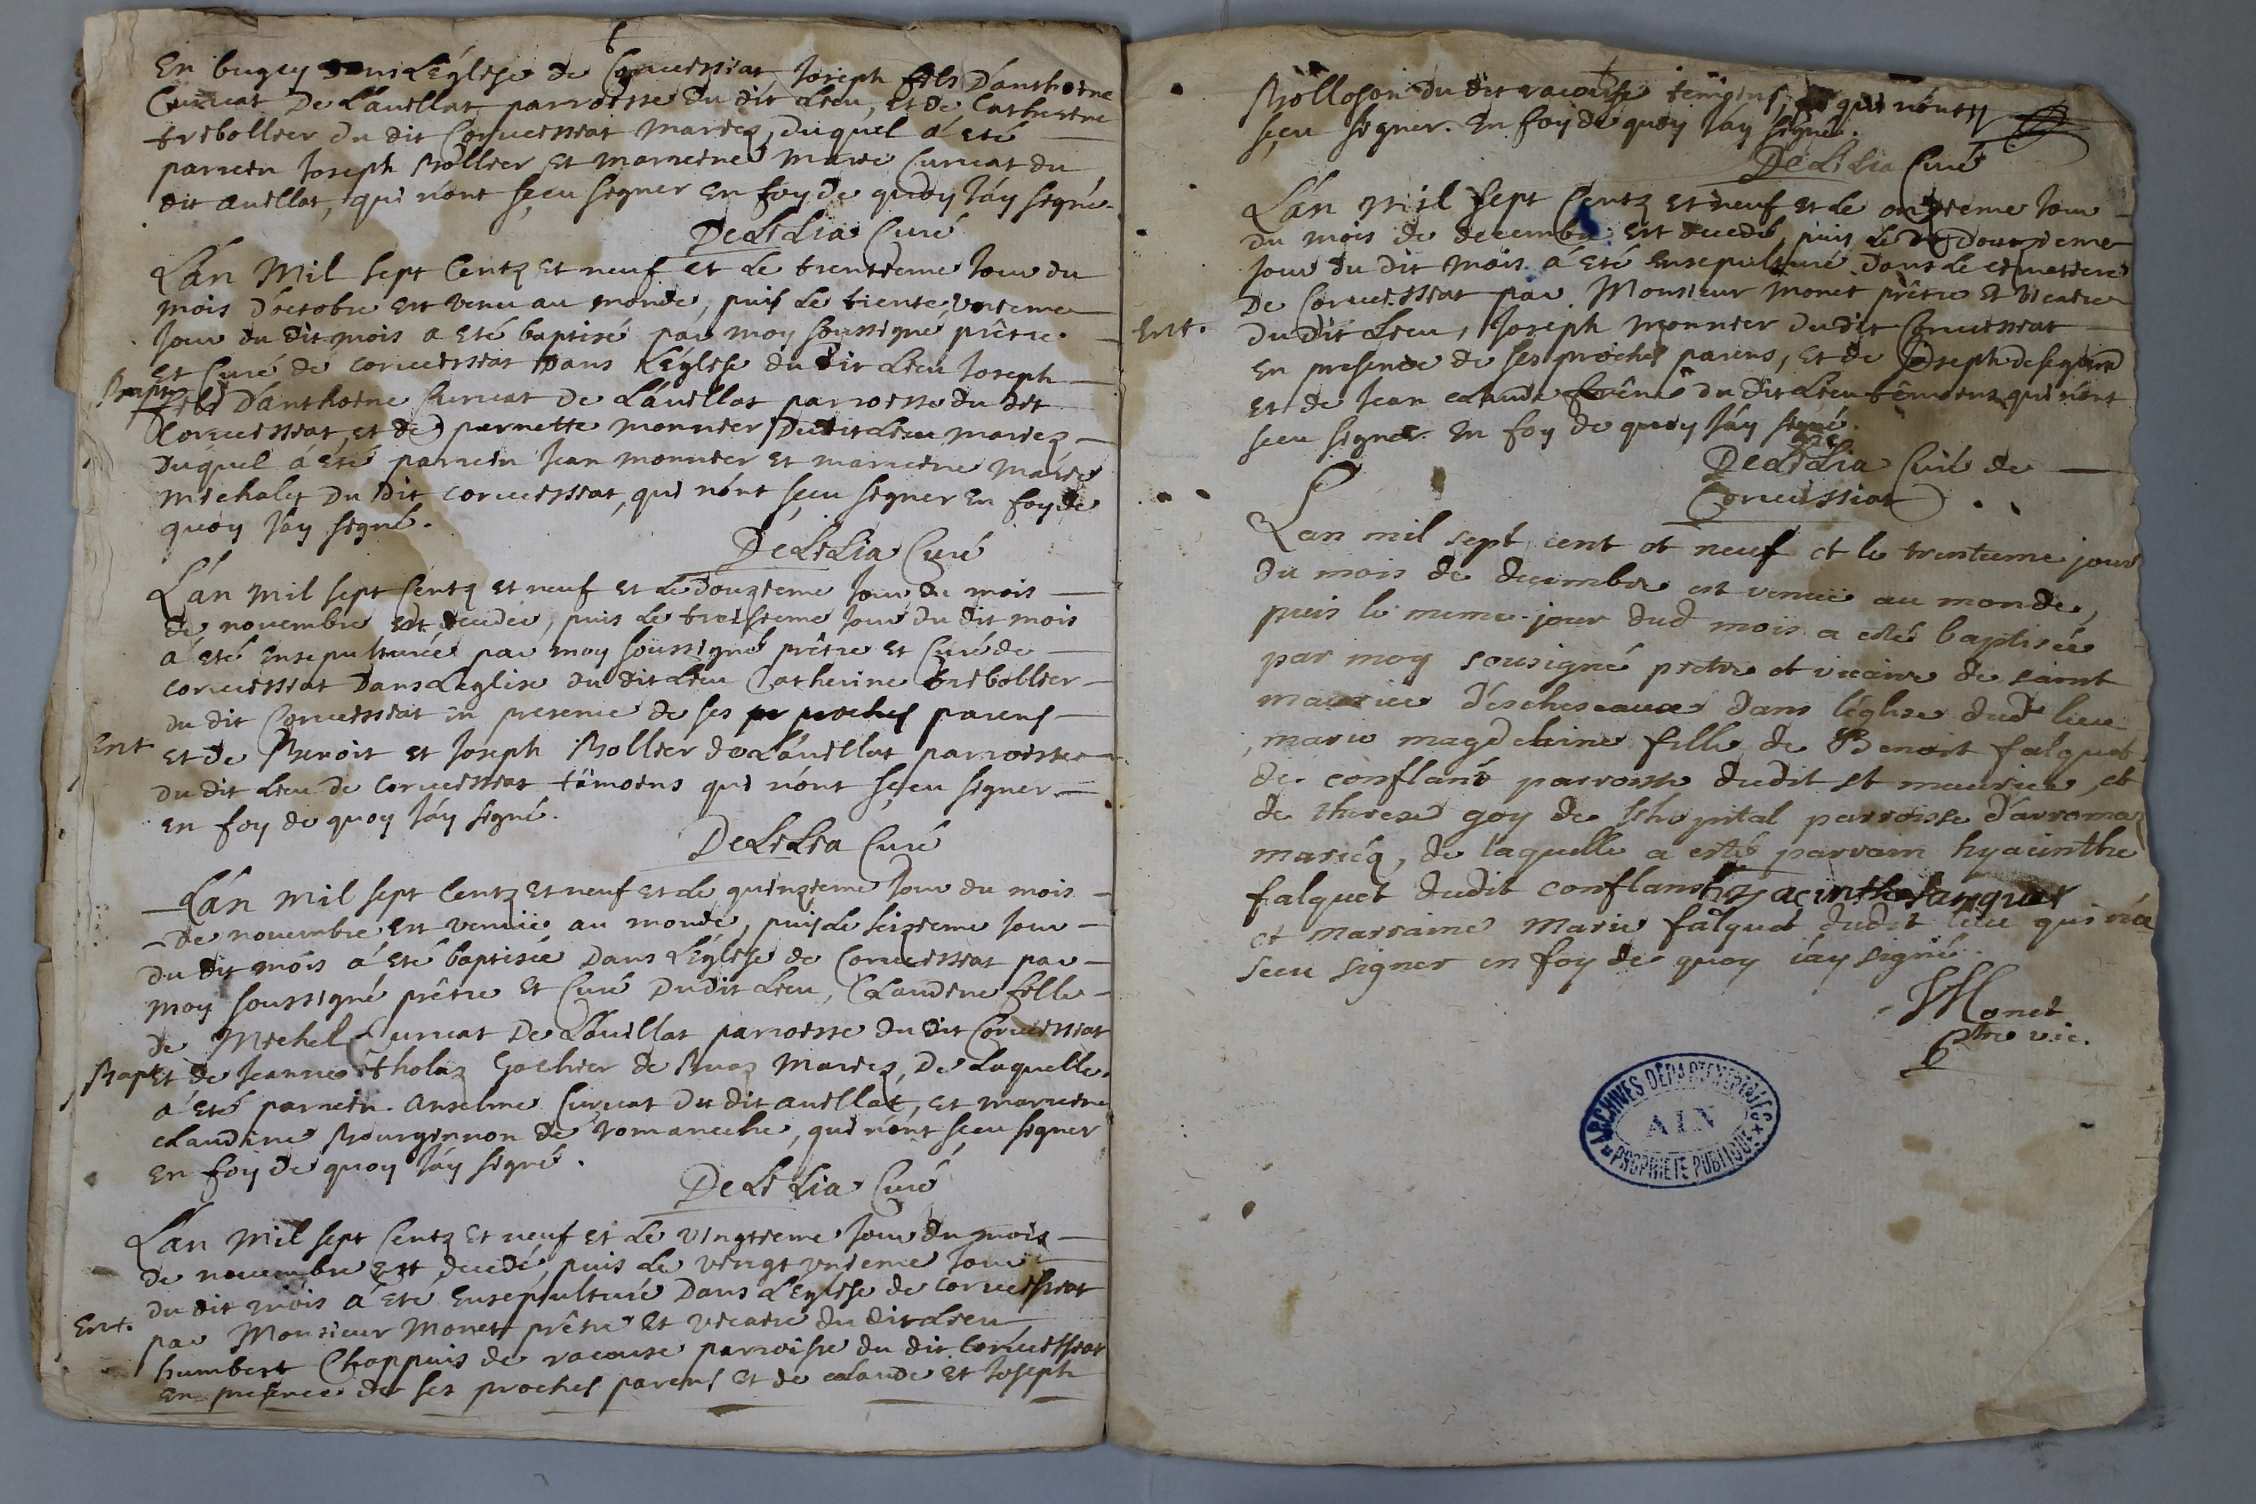 En bugey dans L'Église de Corveissiat, Joseph fils D'anthoine
Curvat De L'avillat parroisse du dit Lieu, et de Catherine
tribollier du dit Corveissiat Mariez, duquel á eté
parrein Joseph Bollier et marreine Marie Curvat du
dit avillat, qui n'ont sçeu signer En foy de quoy J'áy signé.
DeLiLia Curé
L'án Mil sept Centz et neuf et le trentieme Jour du
mois D'octobre est venu au monde, puis Le trente unieme
Jour du dit mois a eté baptisé par moy soussigné prêtre
et Curé de corveissiat Dans L'église du dit Lieu Joseph
Bapt
fils D'anthoine Curvat de L'ávillat parroisse du dit
Corveissiat, et de pernette monnier Dudit Lieu mariez
duquel á eté parrein Jean monnier et marreine Marie
michalet Du dit corveissiat, qui n'ont sçeu signer En foy de
quoy J'áy signé.
DeLiLia Curé
L'án Mil sept Centz et neuf et Le Douzieme Jour du mois
de novembre est decedée, puis Le treisieme Jour Du dit mois
á eté ensepulturée par moy soussigné prêtre et Curé de
corveissiat Dans L'eglise du dit Lieu Catherine tribollier
du dit Corveissiat in presence de ses pr proches parens
Ent
et de Benoit et Joseph Bollier de L'ávillat parroisse
du dit Lieu de Corveissiat témoins qui n'ont sçeu signer
en foy de quoy J'áy signé.
DeLiLia Curé
L'án Mil sept Centz et neuf et Le quinzieme Jour du mois
de novembre est venuë au monde, puis Le seizieme Jour
du dit mois á eté baptisée Dans L'Église de Corveissiat par
moy soussigné prêtre et Curé Dudit Lieu, Claudine fille
de Michel Curvat De L'ávillat parroisse du dit Corveissiat
Bapt
et de Jeanne tholaz Gothier de Buaz Mariez, De Laquelle
á eté parrein Anselme Curvat Du dit avillat, et marreine
claudine Bourginnon de romaneche, qui n'ont sçeu signer
en foy de quoy J'áy signé.
DeLiLia Curé
L'án Mil sept Centz et neuf et Le vingtieme Jour du mois
de novembre est decedé, puis Le vingt unieme Jour
du dit mois á eté Ensepulturé Dans L'Église de corveissiat
Ent.
par Monsieur Monet prêtre et vicaire du dit Lieu
humbert Chappuis de racouse parroisse du dit corveissiat
en presence de ses proches parens et de claude et Joseph
Bolloson du dit racouse temoins, qui n'ont
sçeu signer. En foy de quoy J'áy signé.
DeLiLia Curé
L'án Mil sept Centz et neuf et Le onzieme Jour
du mois de decembre est decedé, puis Le douzieme
Jour du dit mois á eté ensepulturé Dans Le cimetiere
de Corveissiat par Monsieur monet prêtre et vicaire
Ent.
du dit Lieu, Joseph Monnier du dit Corveissiat
en presence de ses proches parens, et de Joseph
et de Jean claude du dit Lieu témoins qui n'ont
sceu signer En foy de quoy J'áy signé.
DeLiLia Curé de
Corveissiat
Lan mil sept cent et neuf et le trentieme jour
du mois de decembre est venuë au monde,
puis le meme jour dud mois a esté baptisée
par moy sousigné pretre et vicaire de saint
maurice d'escheseaux dans l'église dud lieu
marie magdelaine fille de Benoit falquet
de conflans parroisse dudit st maurice, et
de therese goy de l'hopital parroisse d'arromaz
mariéz, de laquelle a esté parrain hyacinthe
falquet dudit conflans hyacinthe falquet
et marraine Marie falquet dudit lieu qui n'a
sceu signer en foy de quoy j'ay signé
Monet
ptre vic.
ARCHIVES DÉPARTEMENTALES
AIN
PROPRIÉTÉ PUBLIQUE